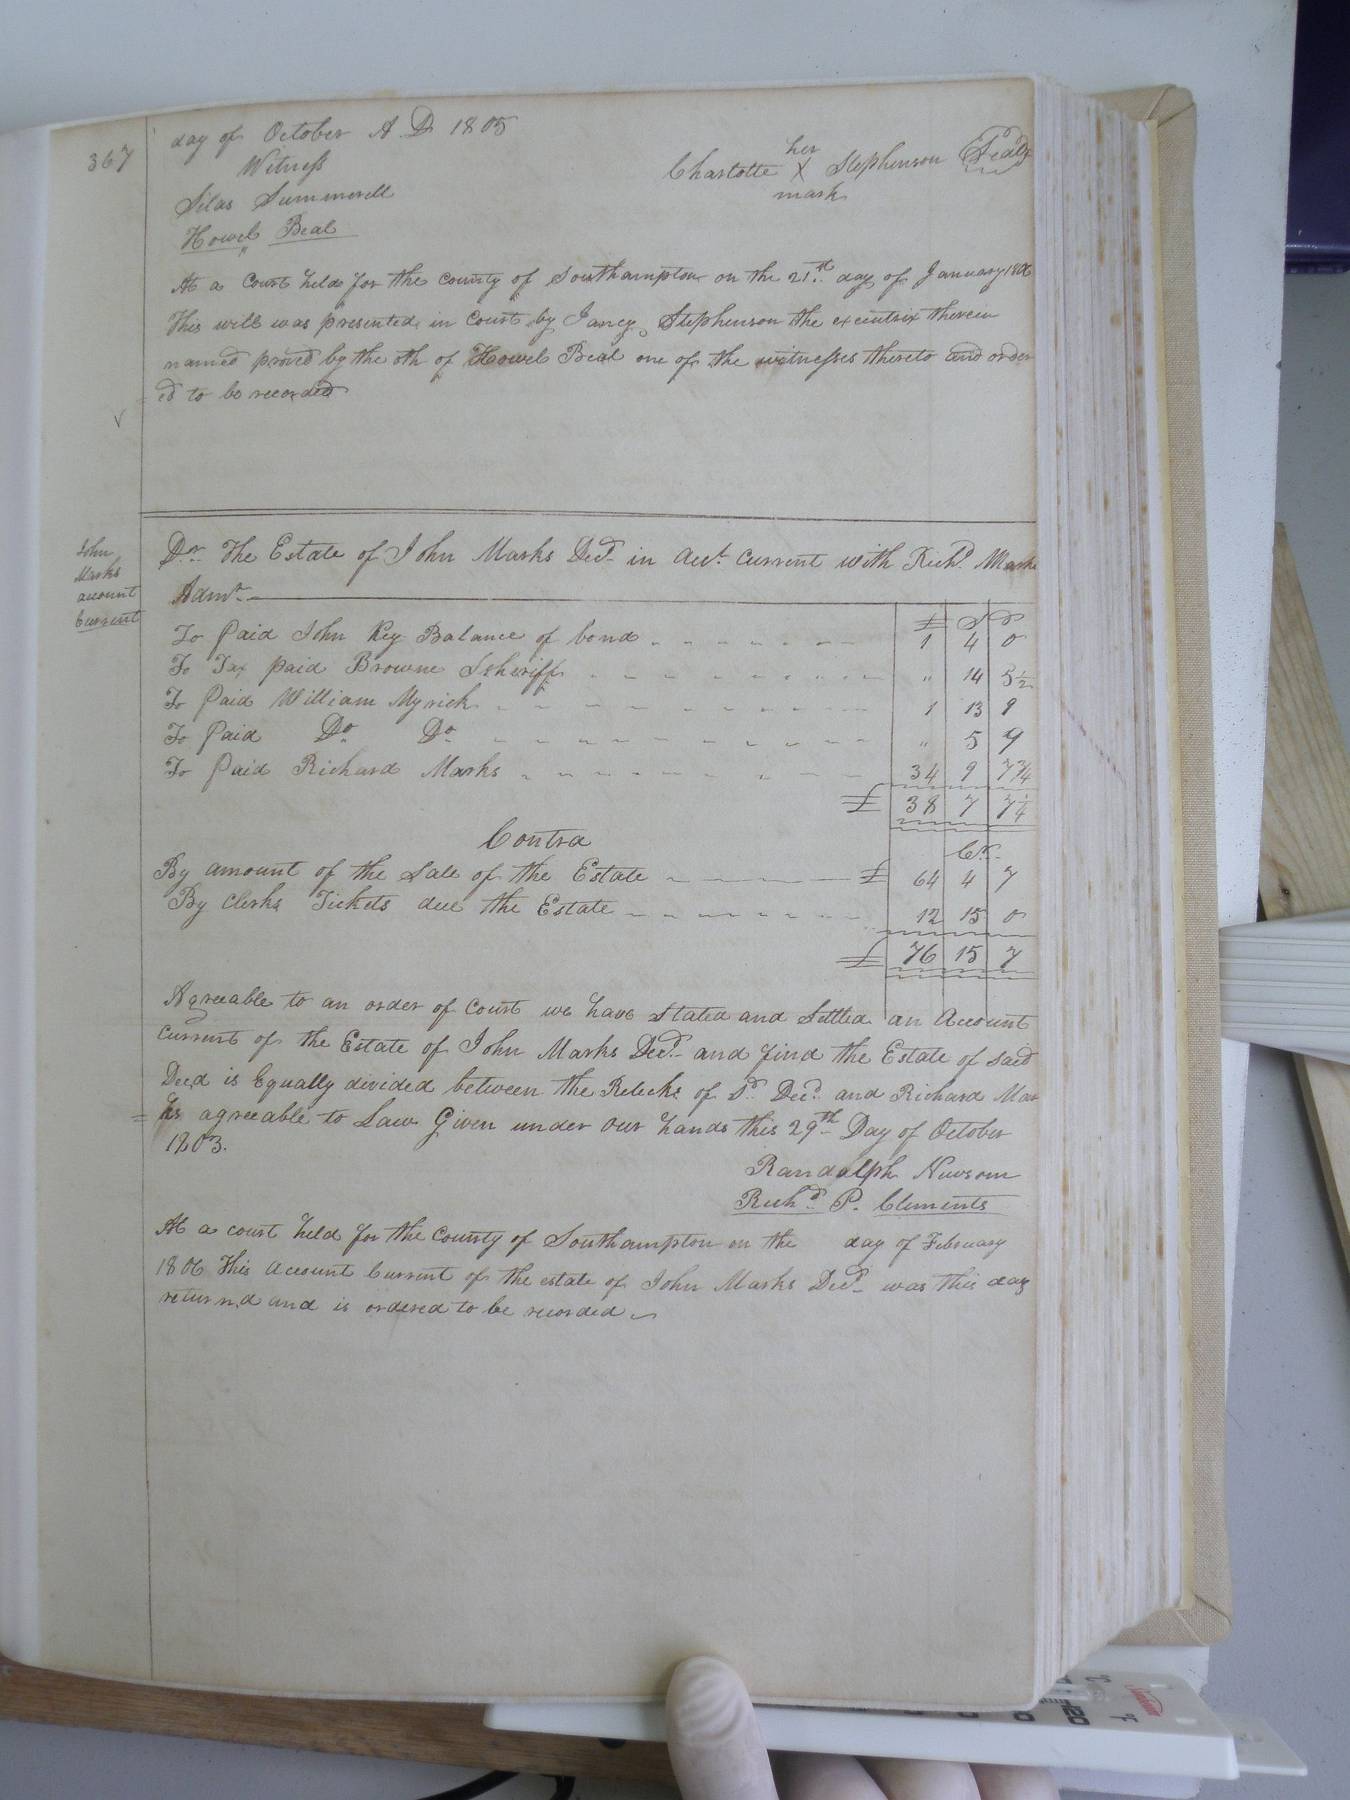 367
day of October A D 1805
Witness
Silas Summerell
Howel Beal
her
Charlotte X Stephenson Seal
mark
At a Court held for the county of Southampton on the 21st day of January 1806
This will was presented in Court by Jancy Stephenson the executrix therein
named proved by the oth of Howel Beal one of the witnesses thereto and order
ed to be recorded
John
Marks
account
Current
Dr. The Estate of John Marks Decd in Acct. Current with Richd. Marks
Admr.
£ S D
To Paid John Key Balance of bond 1 4 0
To Tax paid Browne Sheriff " 14 5½
To Paid William Myrick 1 13 9
To Paid Do Do " 5 9
To Paid Richard Marks 34 9 7¾
£ 38 7 7¼
Contra Cr.
By amount of the Sale of the Estate £ 64 4 7
By Clerks Tickets due the Estate 12 15 0
£ 76 15 7
Agreeable to an order of Court we have Stated and Settled an Account
Current of the Estate of John Marks Decd. and find the Estate of said
Decd is Equally divided between the Relicks of Sd. Decd. and Richard Mar
ks agreeable to Law Given under our hands this 29th Day of October
1803.
Randolph Newsom
Richd. P. Clements
At a court held for the County of Southampton on the day of February
1806 This Account Current of the estate of John Marks Decd was this day
returnd and is ordered to be recorded
°C
°F
120